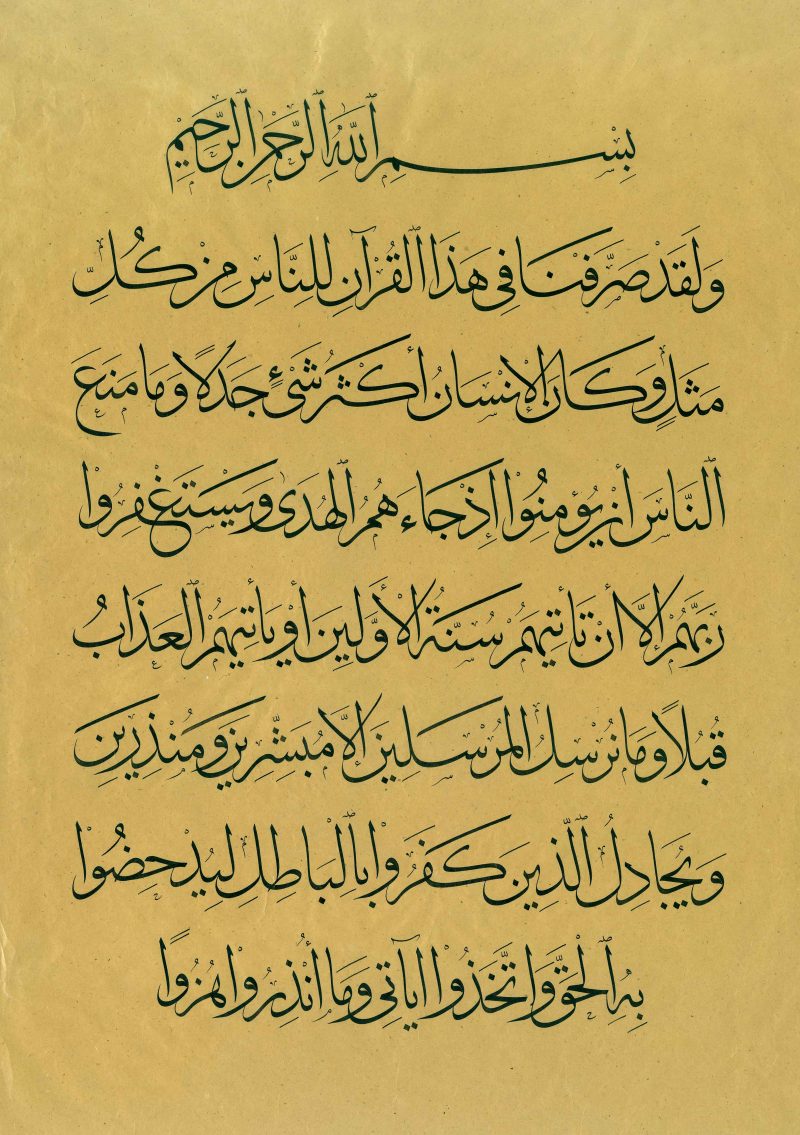 بِسْمِ اللَّهِ الرَّحْمٰنِ الرَّحِيمِ
وَلَقَدْ صَرَّفْنَا فِي هَذَا الْقُرْآنِ لِلنَّاسِ مِنْ كُلِّ
مَثَلٍ وَكَانَ الْإِنْسَانُ أَكْثَرَ شَيْءٍ جَدَلًا وَمَا مَنَعَ
النَّاسَ أَنْ يُؤْمِنُوا إِذْ جَاءَهُمُ الْهُدَىٰ وَيَسْتَغْفِرُوا
رَبَّهُمْ إِلَّا أَنْ تَأْتِيَهُمْ سُنَّةُ الْأَوَّلِينَ أَوْ يَأْتِيَهُمُ الْعَذَابُ
قُبُلًا وَمَا نُرْسِلُ الْمُرْسَلِينَ إِلَّا مُبَشِّرِينَ وَمُنْذِرِينَ
وَيُجَادِلُ الَّذِينَ كَفَرُوا بِالْبَاطِلِ لِيُدْحِضُوا
بِهِ الْحَقَّ وَاتَّخَذُوا آيَاتِي وَمَا أُنْذِرُوا هُزُوًا